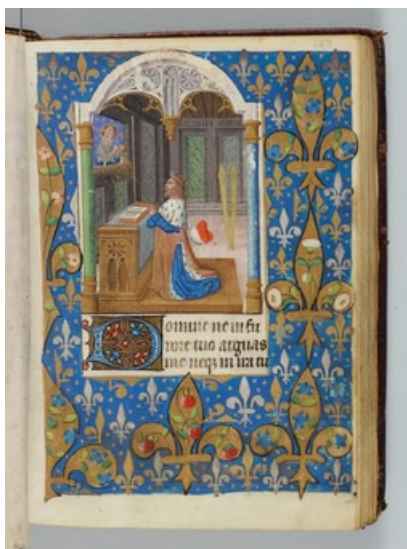 127
Domine ne in fu
rore tuo arguas
me neq; in ira tu